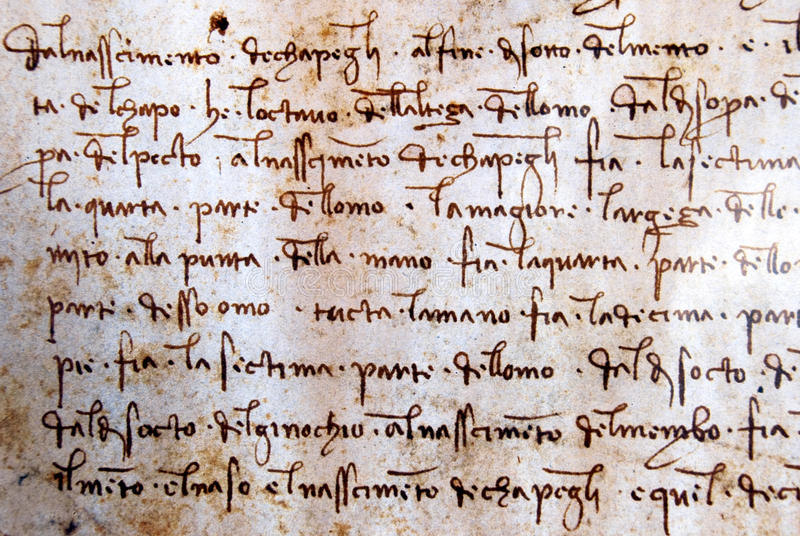 Dalnasscimento · dechapegli · alfine disotto · delmento · e · il
ta · delchapo · he · loctavo · dellalteza · dellomo · dal disopa · de
pa · delpecto · alnasscimēto dechapegli fia · lasectima
la · quarta · parte · dellomo · lamagiore · largeza · delle ·
mito · alla punta · della · mano · fia · laquarta · parte · dello
parte · dessoomo · tucta · lamano · fia · ladecima · part
pie · fia · la sectima · parte · dellomo · dal di socto · de
dal di socto · delginochio · alnasscimēto delmembro · fia
ilmēto · elnaso · elnasscimēto dechapegli · e quel ·